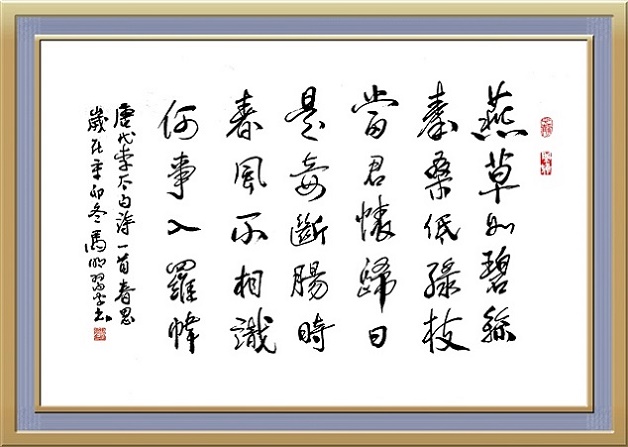 燕草如碧絲
秦桑低綠枝
當君懷歸日
是妾斷腸時
春風不相識
何事入羅幃
唐代李太白詩一首春思
歲在辛卯冬馬明書